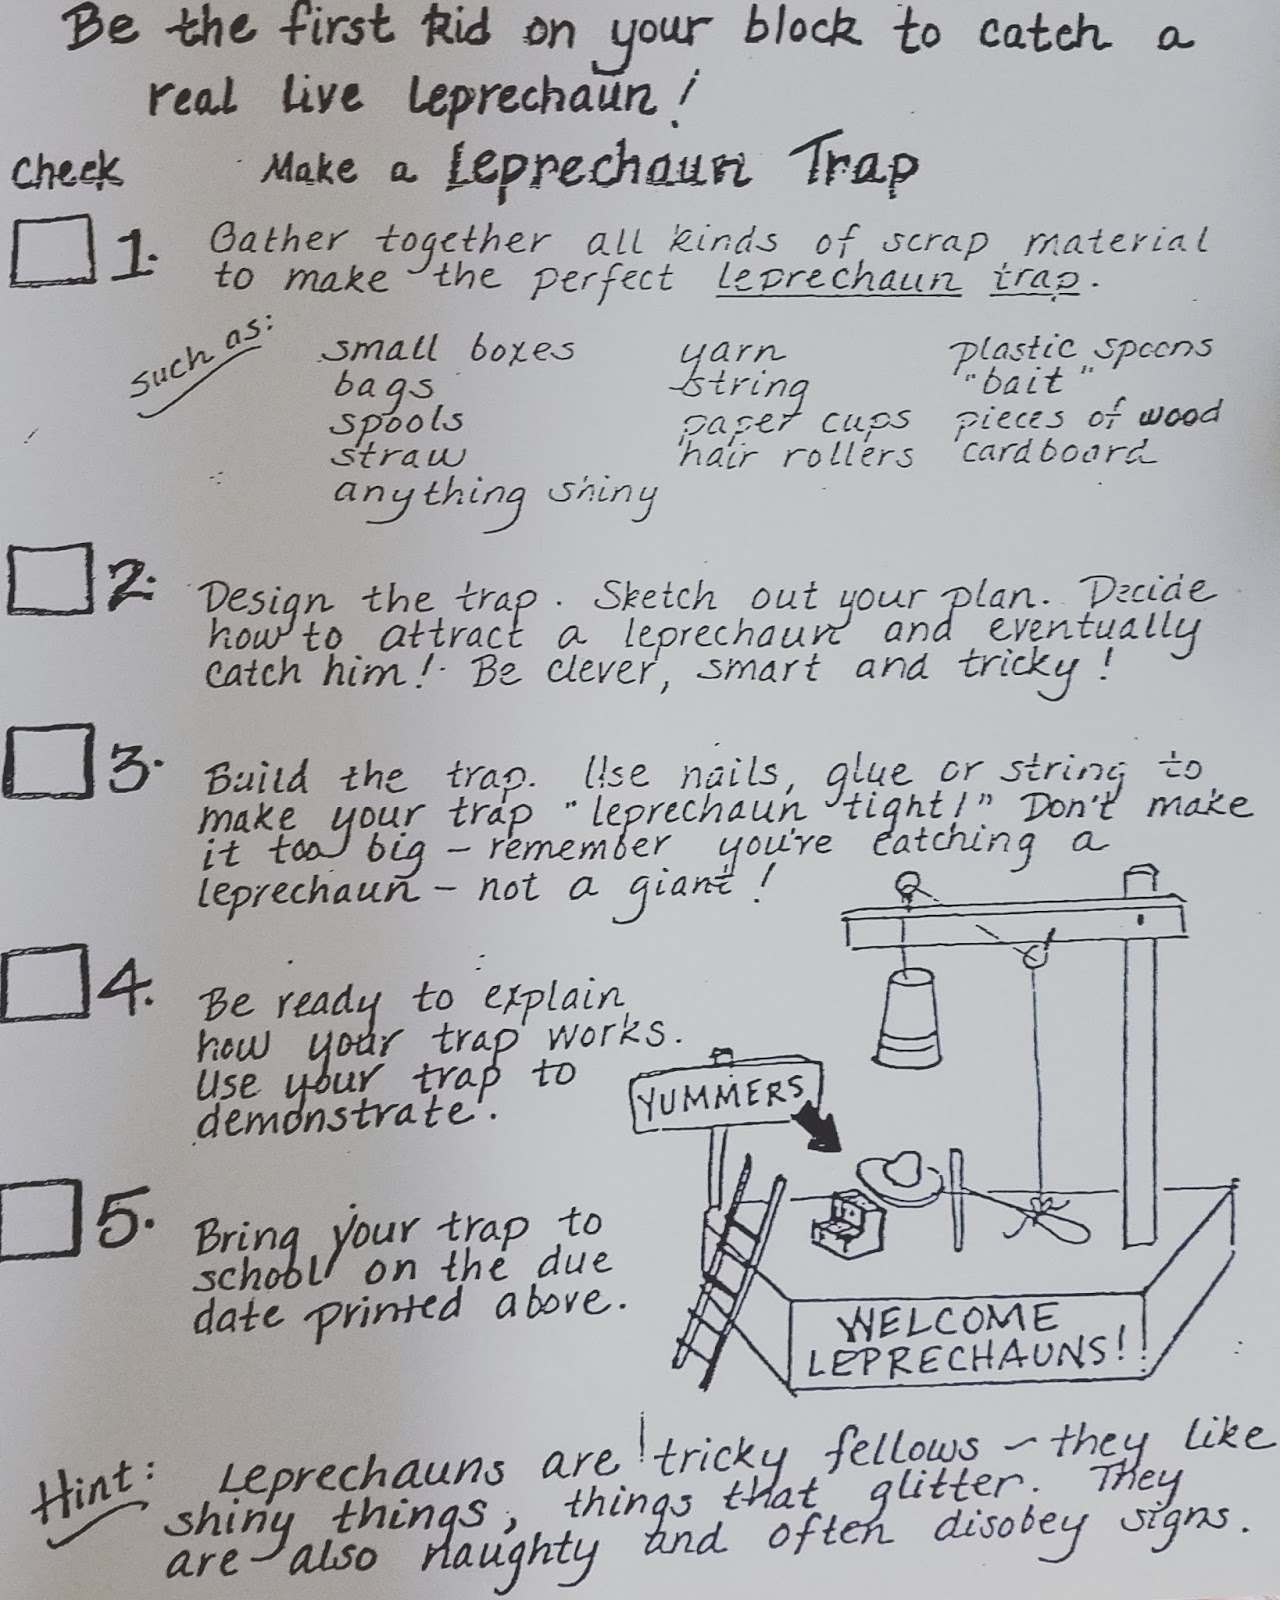 Be the first kid on your block to catch a
real live leprechaun!
Check
Make a Leprechaun Trap
1. Gather together all kinds of scrap material
to make the perfect leprechaun trap.
such as:
small boxes yarn plastic spoons
bags string "bait"
spools paper cups pieces of wood
straw hair rollers cardboard
anything shiny
2. Design the trap. Sketch out your plan. Decide
how to attract a leprechaun and eventually
catch him! Be clever, smart and tricky!
3. Build the trap. Use nails, glue or string to
make your trap "leprechaun tight!" Don't make
it too big - remember you're catching a
leprechaun - not a giant!
4. Be ready to explain
how your trap works.
Use your trap to
demonstrate.
YUMMERS
5. Bring your trap to
school on the due
date printed above.
WELCOME
LEPRECHAUNS!
Hint: Leprechauns are tricky fellows - they like
shiny things, things that glitter. They
are also naughty and often disobey signs.